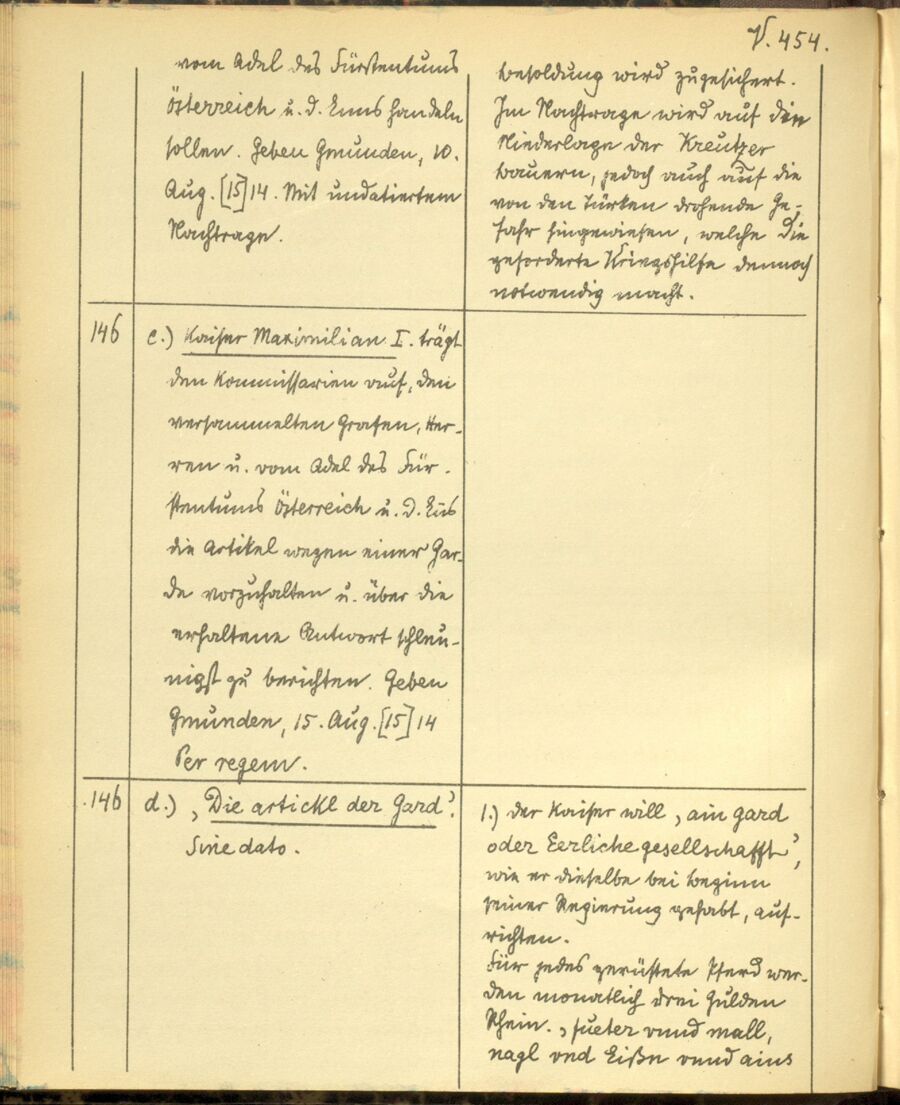 V. 454.
vom Adel des Fürstentums
Österreich u. d. Enns handeln
sollen. Geben Gmunden, 10.
Aug. [15]14. Mit undatiertem
Nachtrage.
besoldung wird zugesichert.
Im Nachtrage wird auf die
Niederlage der Kreutzer
bauern, jedoch auch auf die
von den Türken drohende Ge-
fahr hingewiesen, welche die
geforderte Kriegshilfe dennoch
notwendig macht.
146
c.) Kaiser Maximilian I. trägt
den Kommissarien auf, den
versammelten Grafen, Her-
ren u. vom Adel des Für-
stentums Österreich u. d. Eñs
die Artikel wegen einer Gar-
de vorzuhalten u. über die
erhaltene Antwort schleu-
nigst zu berichten. Geben
Gmunden, 15. Aug. [15]14
Per regem.
146
d.) ‚Die artickl der Gard‘.
Sine dato.
1.) Der Kaiser will ‚ain gard
oder Eerliche gesellschafft‘,
wie er dieselbe bei Beginn
seiner Regierung gehabt, auf-
richten.
Für jedes gerüstete Pferd wer-
den monatlich drei Gulden
Rhein. ‚fueter vnnd mall,
nagl vnd Eißn vnnd ains